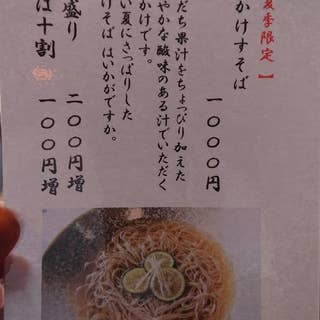 夏季限定】
かけすそば
一〇〇〇円
だち果汁をちょっぴり加えた
やかな酸味のある汁でいただく
かけです。
い夏にさっぱりした
けそば はいかがですか。
盛り 二〇〇円増
は十割 一〇〇円増